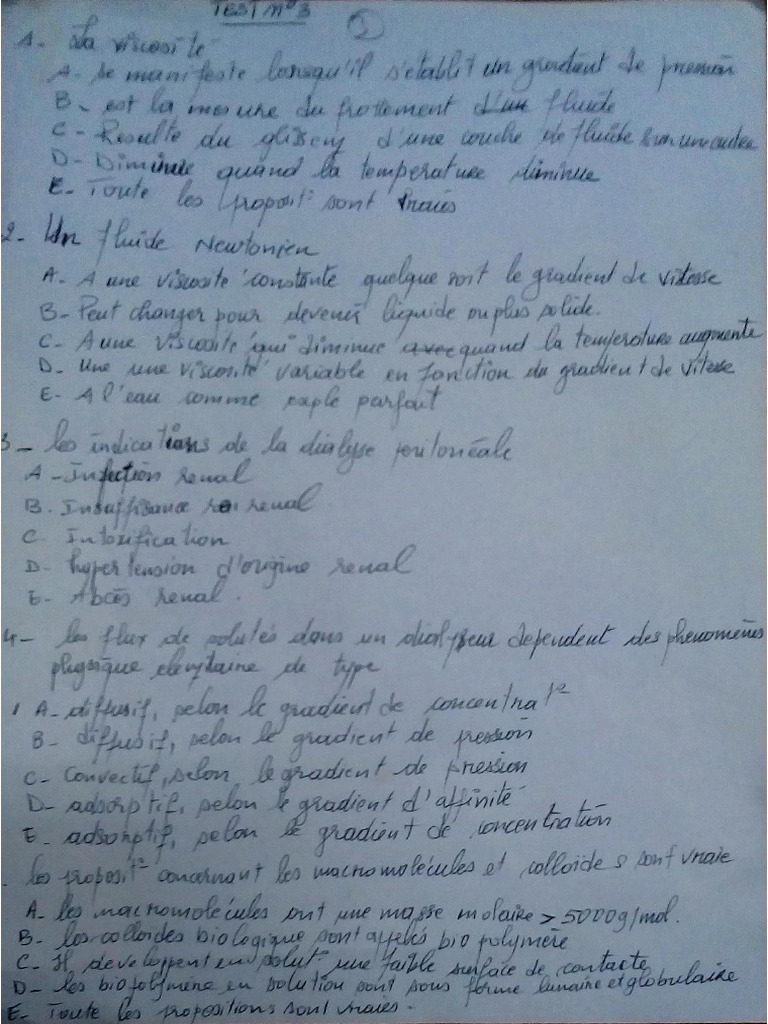 TEST N°3
1
1- La viscosité
A- se manifeste lorsqu'il s'etablit un gradient de pression
B- est la mesure du frottement d'un fluide
C- Resulte du d'une couche de fluide sur une autre
D- Diminue quand la temperature diminue
E- Toute les proposit° sont vraies
2- Un fluide Newtonien
A- A une viscosité constante quelque soit le gradient de vitesse
B- Peut changer pour devenir liquide ou plus solide.
C- A une viscosité qui diminue quand la temperature augmente
D- Une une viscosité variable en fonction du gradient de vitesse
E- A l'eau comme exple parfait
3- les indications de la dialyse peritonéale
A- Infection renal
B. Insuffisance renal
C- Intoxification
D- hypertension d'origine renal
E- Abcès renal.
4- les flux de solutés dans un dialyseur dependent des phenomènes
physique de type
A- diffusif, selon le gradient de concentrat°
B- diffusif, selon le gradient de pression
C- Convectif, selon le gradient de pression
D- adsorptif, selon le gradient d'affinité
E- adsorptif, selon le gradient de concentration
les proposit° concernant les macromolécules et colloides sont vraie
A- les macromolécules ont une masse molaire > 5000g/mol.
B- les colloides biologique sont appelés bio polymère
C- Il developpent en solut° une faible surface de contacte
D- les biopolymère en solution sont sous forme et globulaire
E- Toute les propositions sont vraies.